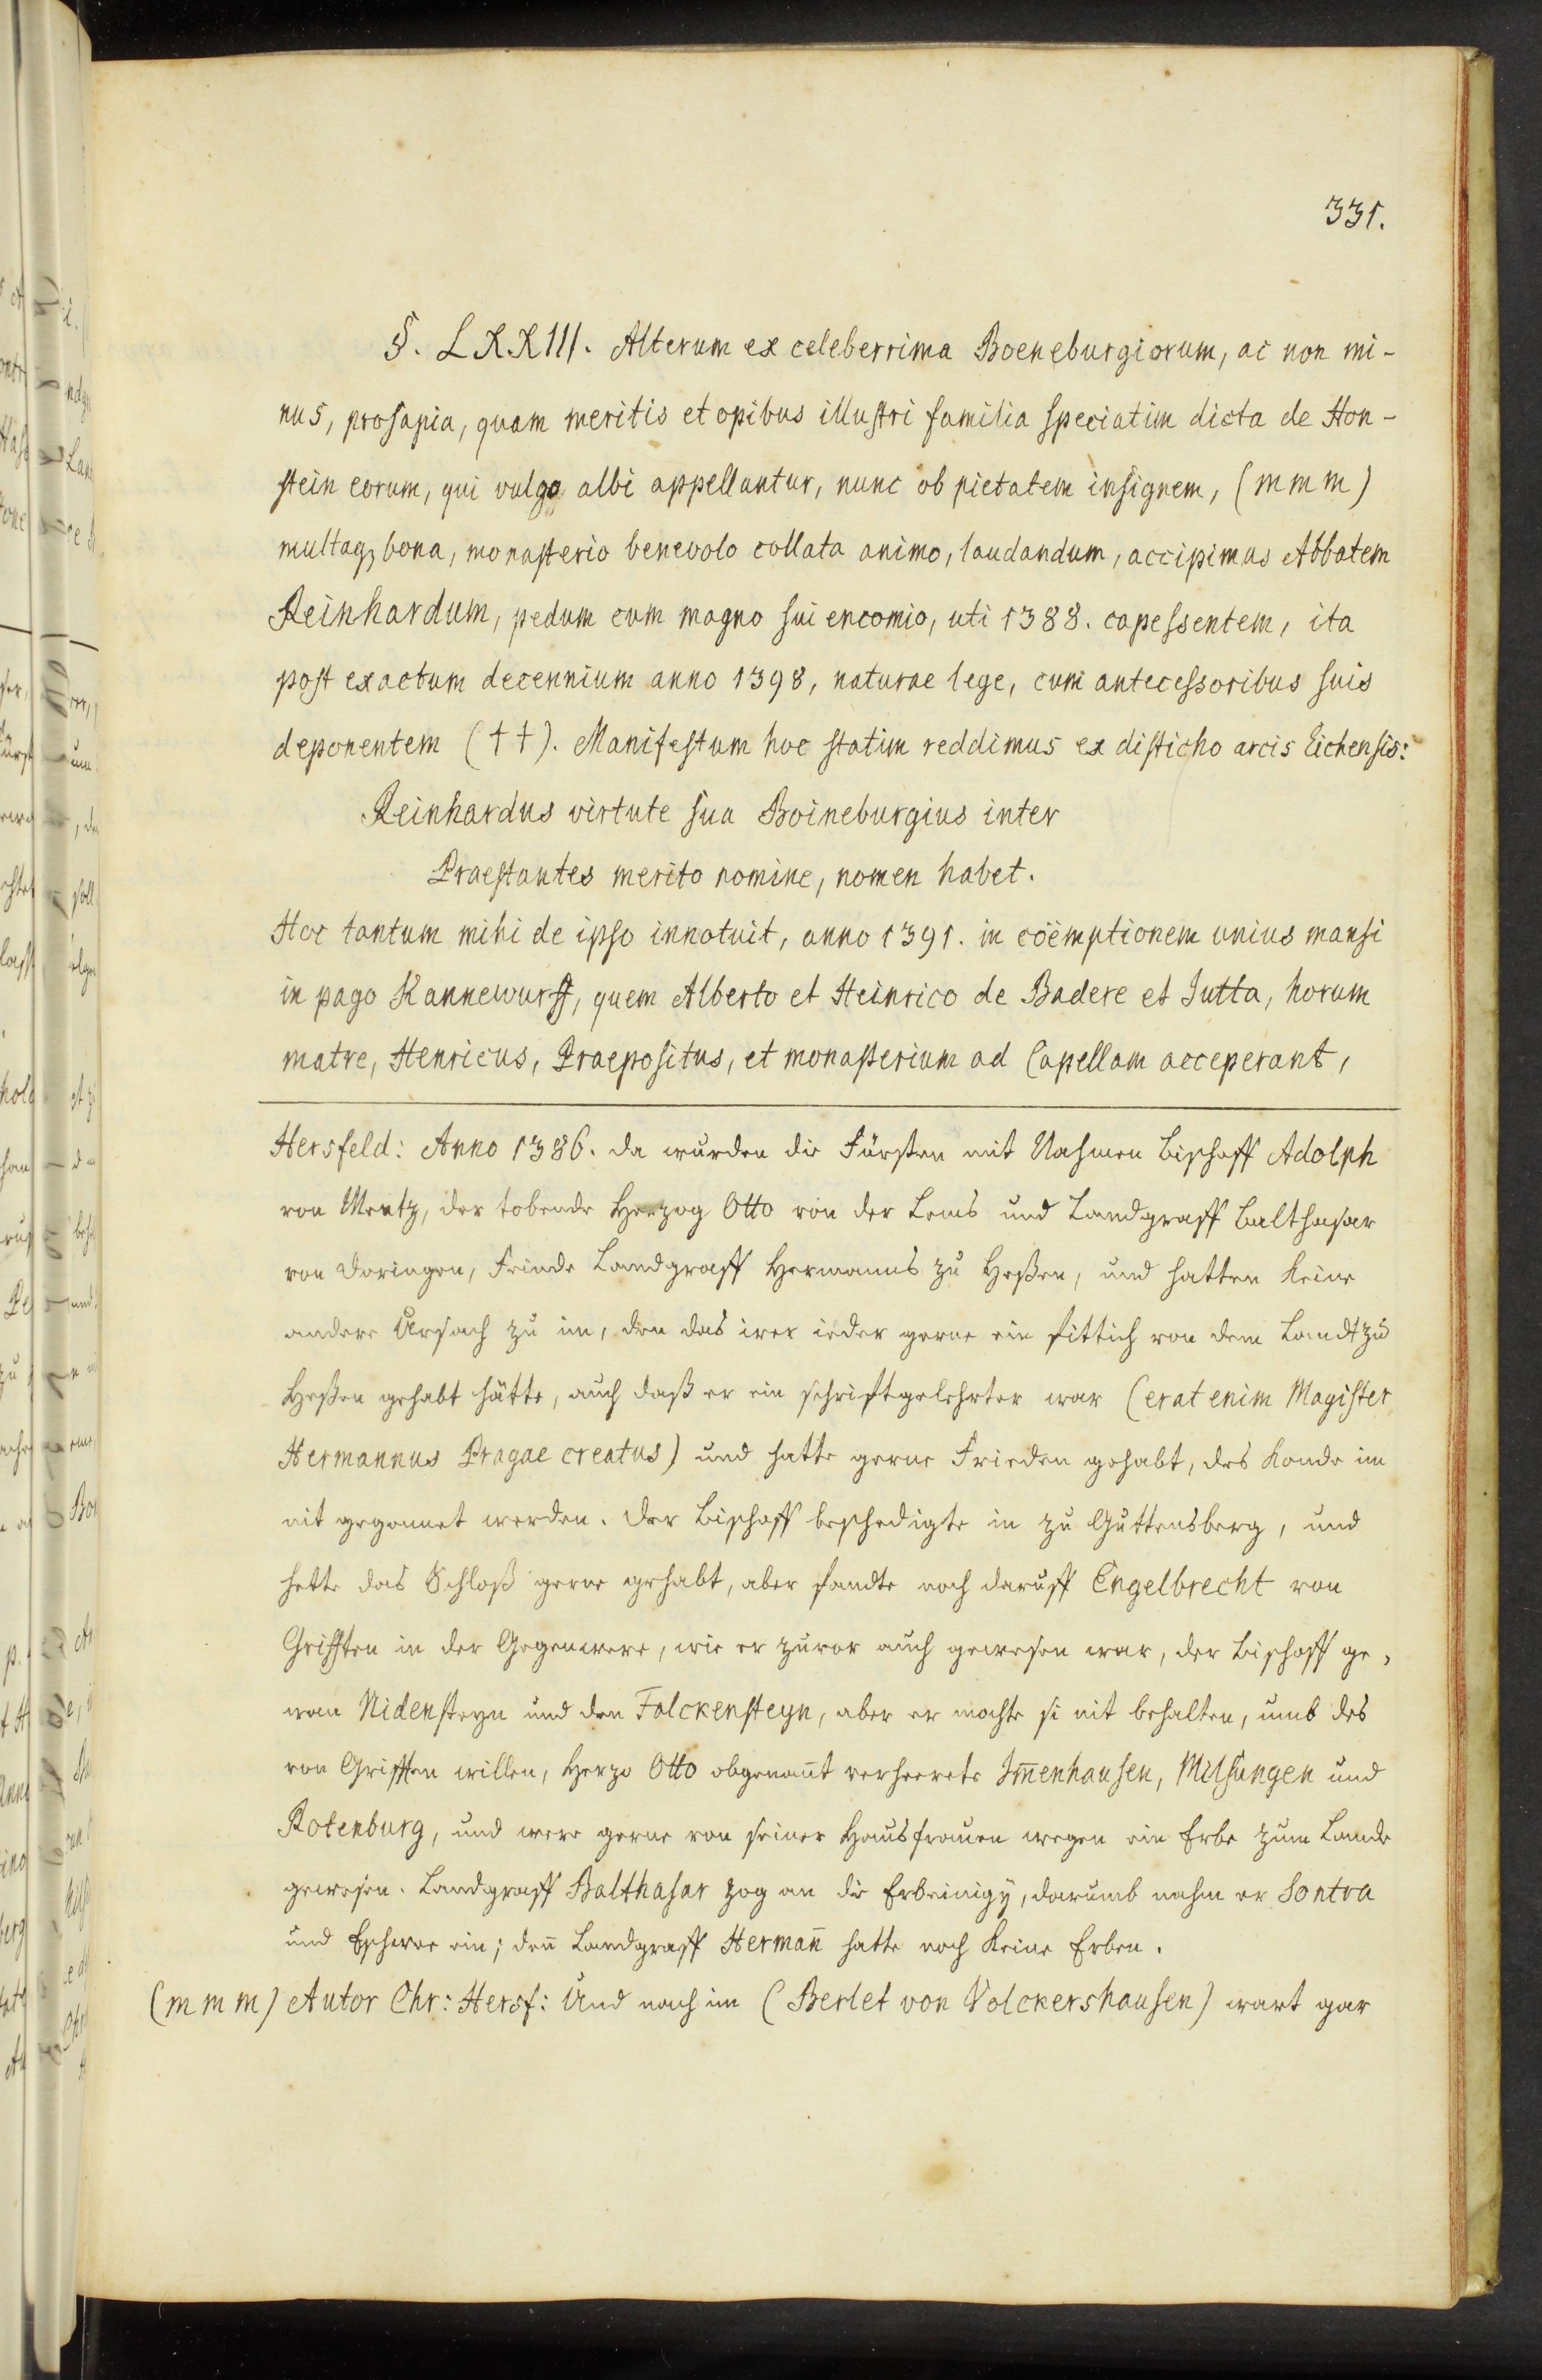 331.
§. LXXIII. Alterum ex celeberrima Boeneburgiorum, ac non mi-
nus, prosapia, quam meritis et opibus illustri familia speciatim dicta de Hon-
stein eorum, qui vulgo albi appellantur, nunc ob pietatem insignem, (m m m)
multaqꝫ bona, monasterio benevolo collata animo, laudandum, accipimus Abbatem
Reinhardum, pedum cum magno sui encomio, uti 1388. capessentem, ita
post exactum decennium anno 1398, naturae lege, cum antecessoribus suis
deponentem (††). Manifestum hoc statim reddimus ex disticho arcis Eichensis:
Reinhardus virtute sua Boineburgius inter
Praestantes merito nomine, nomen habet.
Hoc tantum mihi de ipso innotuit, anno 1391. in coëmptionem unius mansi
in pago Kannewurff, quem Alberto et Heinrico de Badere et Jutta, horum
matre, Henricus, Praepositus, et monasterium ad Capellam acceperant,
Hersfeld: Anno 1386. da wurden die Fürsten mit Nahmen Bischoff Adolph
von Mentz, der tobende Herzog Otto von der Leins und Landgraff Balthasar
von Doringen, Feinde Landgraff Hermanns zu Heßen, und hatten keine
andere Ursach zu im, den das irer ieder gerne ein fittich von dem Landt zu
Heßen gehabt hätte, auch daß er ein schriftgelehrter war (erat enim Magister
Hermannus Pragae creatus) und hatte gerne Frieden gehabt, des konde im
nit gegonnet werden. Der Bischoff beschedigte in zu Guttensberg, und
hette das Schloß gerne gehabt, aber fandte noch daruff Engelbrecht von
Grifften in der Gegenwere, wie er zuvor auch gewesen war, der Bischoff ge-
wan Nidensteyn und den Falckensteyn, aber er mochte si nit behalten, umb des
von Grifften willen, Herzo Otto obgenant verheerete Im̄enhausen, Milsungen und
Rotenburg, und were gerne von seiner Hausfrauen wegen ein Erbe zum Lande
gewesen. Landgraff Balthasar zog an die Erbeinigy, darumb nahm er Sontra
und Eschwee ein; den̄ Landgraff Herman̄ hatte noch keine Erben.
(m m m) Autor Chr: Hersf: Und nach im (Berlet von Volckershausen) wart gar